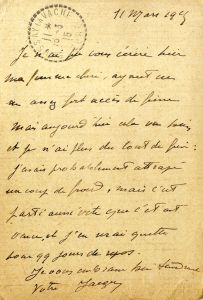 11 Mars 19
Je n'ai pu vous écrire hier
ma femme chérie, ayant eu
un assez fort accès de fièvre
mais aujourd'hui cela va bien
et je n'ai plus du tout de fièvre
j'avais probablement attrapé
un coup de froid, mais c'est
parti aussi vite que c'était
venu, et j'en serai quitte
pour qq jours de repos.
Je vous embrasse bien tendrement
Votre Jacques